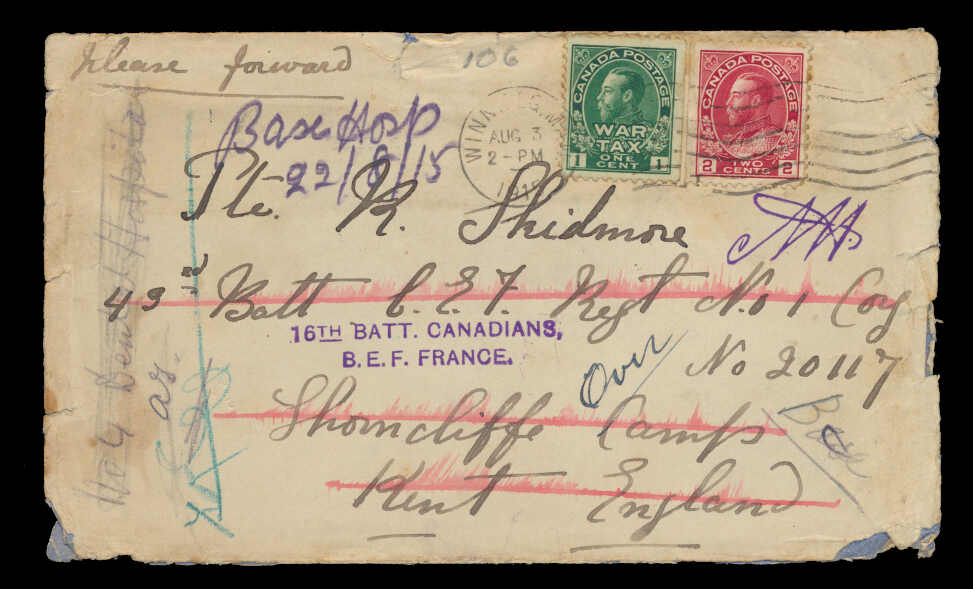 Please forward
106
CANADA POSTAGE
WAR
TAX
ONE
CENT
1 1
CANADA POSTAGE
TWO
CENTS
2 2
AUG 3
2 - PM
Base Hosp
22/8/15
Pte. R. Skidmore
43rd Batt C.E.F Regt No. 1 Coy
16TH BATT. CANADIANS,
B.E.F. FRANCE.
Over
No 20117
Shorncliffe Camps
Kent England